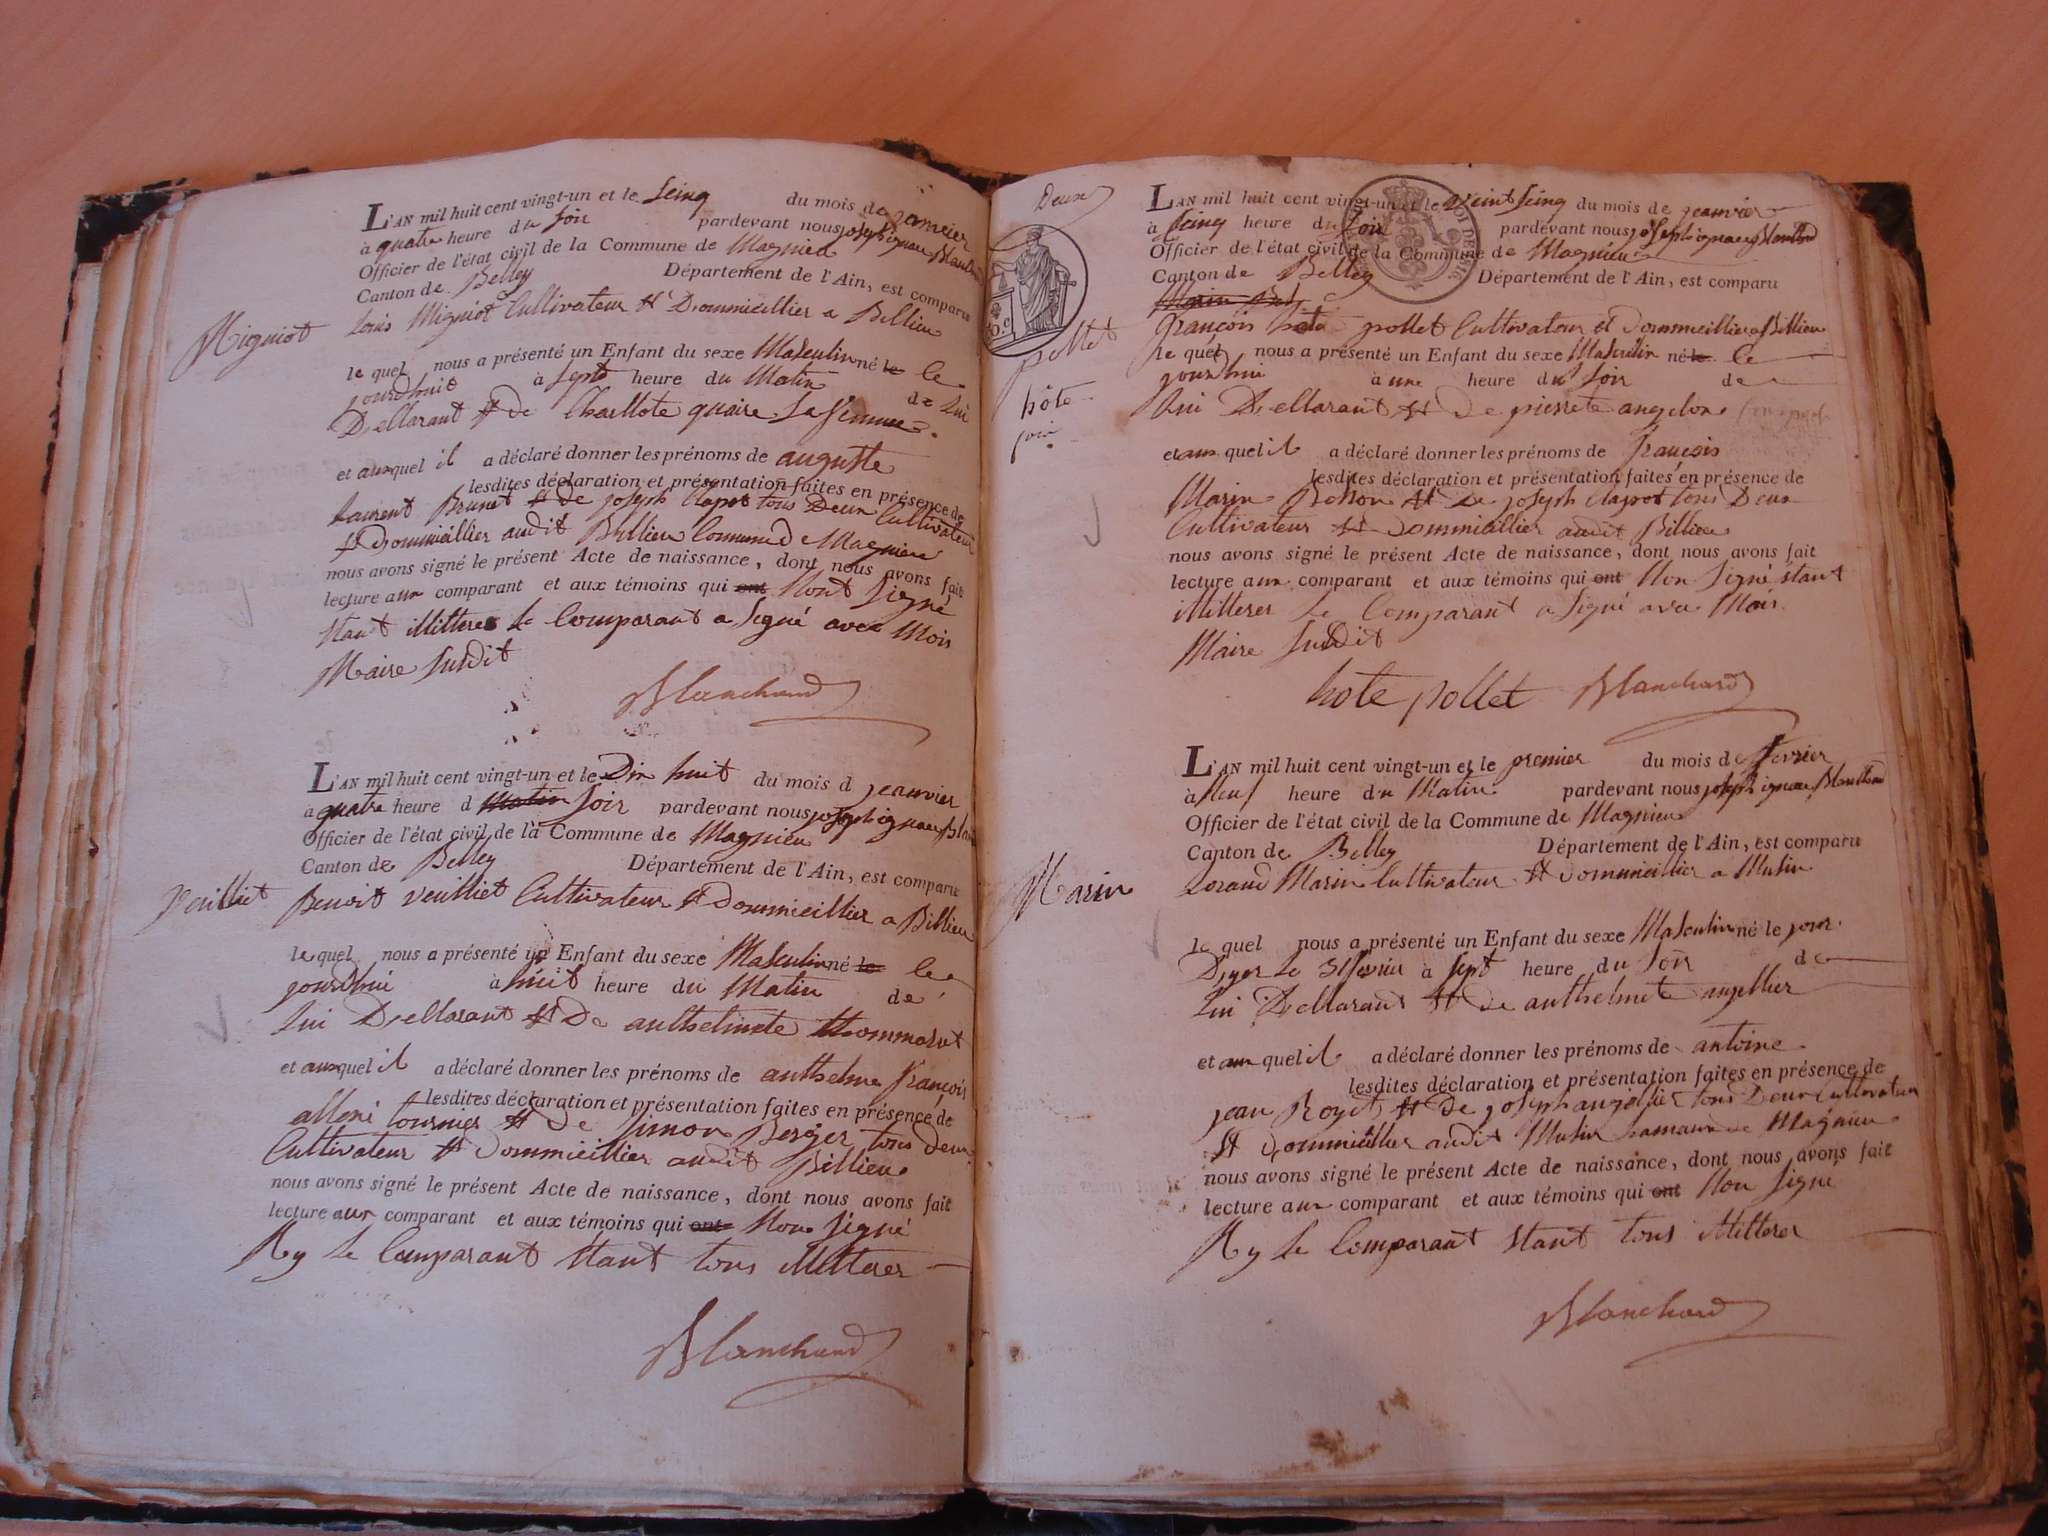 L'AN mil huit cent vingt-un et le Seinq du mois de jeanvier
à quatre heure du Soir pardevant nous joseph ignace Blanchard
Officier de l'état civil de la Commune de Magnieu
Canton de Belley Département de l'Ain, est comparu
Migniot
Louis Migniot Cultivateur et Dommicillier a Billieu
le quel nous a présenté un Enfant du sexe Masculin né le le
jourdhuit à Sept heure du Matin de Lui
Dellarant et de Charllote quaire Sa femme
et auquel il a déclaré donner les prénoms de auguste
lesdites déclaration et présentation faites en présence de
Laurent Brunet et de joseph Clapot tous Deux Cultivateur
et Dommicillier audit Billieu Commune de Magnieu
nous avons signé le présent Acte de naissance, dont nous avons fait
lecture au comparant et aux témoins qui ont Nont Signé
Etant illitteres Le Comparant a Signé avec Mois
Maire Susdit
Blanchard
L'AN mil huit cent vingt-un et le Dix huit du mois d jeanvier
à quatre heure d Matin Soir pardevant nous joseph ignace Blan
Officier de l'état civil de la Commune de Magnieu
Canton de Belley Département de l'Ain, est comparu
Veuilliet
Benoit veuilliet Cultivateur et Dommicillier a Billieu
le quel nous a présenté un Enfant du sexe Masculin né le le
jourdhui à huit heure du Matin de
Lui Dellarant et De anthelmete
et auquel il a déclaré donner les prénoms de anthelme françois
lesdites déclaration et présentation faites en présence de
tournier et de Simon Berger tous deux
Cultivateur et Dommicillier audit Billieu
nous avons signé le présent Acte de naissance, dont nous avons fait
lecture aux comparant et aux témoins qui ont Non Signé
Ny Le Comparant Etant tous illitterer
Blanchard
Deux
L'AN mil huit cent vingt-un et le veint Seinq du mois de jeanvier
à Seinq heure du Soir pardevant nous joseph ignace Blanchard
Officier de l'état civil de la Commune de Magnieu
Canton de Belley Département de l'Ain, est comparu
Marin
françois hote pollet Cultivateur et Dommicillier a Billieu
pollet
hôte
le quel nous a présenté un Enfant du sexe Masculin né le le
jourdhui à une heure du Soir de
Lui Dellarant et de pierrete angelon
et au quel il a déclaré donner les prénoms de françois
lesdites déclaration et présentation faites en présence de
Marin Bosson et de joseph Clapot tous Deux
Cultivateur et Dommicillier audit Billieu
nous avons signé le présent Acte de naissance, dont nous avons fait
lecture aux comparant et aux témoins qui ont Non Signé étant
illitterer Le Comparant a Signé avec Mois
Maire Susdit
hote pollet Blanchard
L'AN mil huit cent vingt-un et le premier du mois de fevrier
à Neuf heure du Matin pardevant nous joseph ignace Blanchard
Officier de l'état civil de la Commune de Magnieu
Canton de Belley Département de l'Ain, est comparu
Marin
Marin Cultivateur et Dommicillier a Musin
le quel nous a présenté un Enfant du sexe Masculin né le jour
Dyer Le 31 à Sept heure du Soir de
Lui Dellarant et de anthelmete angellier
et au quel il a déclaré donner les prénoms de antoine
lesdites déclaration et présentation faites en présence de
jean Royet et de joseph angellier tous Deux Cultivateur
et Dommicillier audit Musin Commune de Magnieu
nous avons signé le présent Acte de naissance, dont nous avons fait
lecture aux comparant et aux témoins qui ont Non Signé
Ny Le Comparant Etant tous illitterer
Blanchard